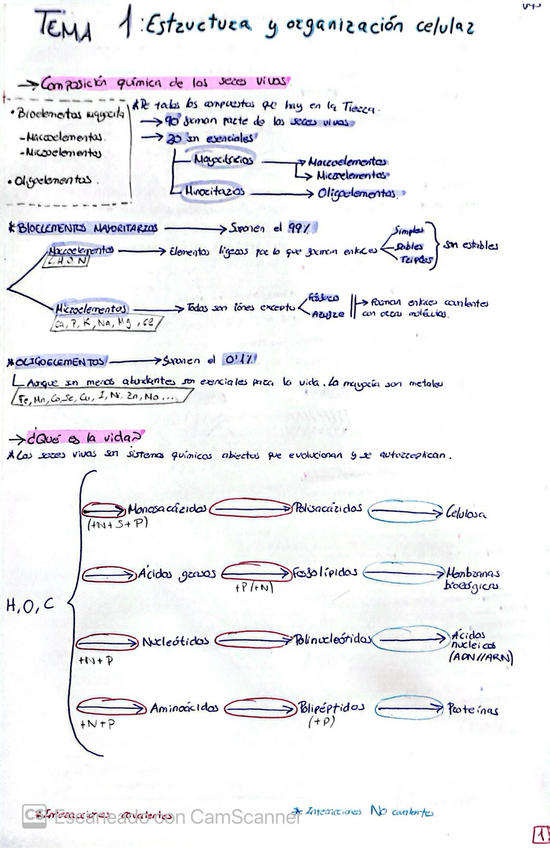 TEMA 1: Estructura y organización celular
→ Composición química de los seres vivos
• Bioelementos mayorita
- Macroelementos.
- Microelementos
• Oligoelementos.
* De todos los compuestos que hay en la Tierra.
→ 90 forman parte de los seres vivos
→ 20 son esenciales
Mayoritarios → Macroelementos
→ Microelementos
Minoritarios → Oligoelementos.
* BIOELEMENTOS MAYORITARIOS → Suponen el 99%
Macroelementos → Elementos ligeros por lo que forman enlaces
C, H, O, N
Simples
Dobles
Triples
son estables
Microelementos → Todos son iones excepto
Ca, P, K, Na, Mg, Cl
Fósforo
Azufre
→ Forman enlaces covalentes
con otras moléculas.
* OLIGOELEMENTOS → Suponen el 0'1%
Aunque son menos abundantes son esenciales para la vida. La mayoría son metales
Fe, Mn, Co, Se, Cu, I, Ni, Zn, Mo...
→ ¿Qué es la vida?
* Los seres vivos son sistemas químicos abiertos que evolucionan y se autorreplican.
H, O, C
→ Monosacáridos → Polisacáridos → Celulosa
(+N+S+P)
→ Ácidos grasos → Fosfolípidos → Membranas
biológicas.
+P (+N)
→ Nucleótidos → Polinucleótidos → Ácidos
nucleicos
(ADN//ARN)
+N+P
→ Aminoácidos → Polipéptidos → Proteínas
+N+P
(+P)
* Interacciones covalentes
* Interacciones NO covalentes
CS Escaneado con CamScanner
1